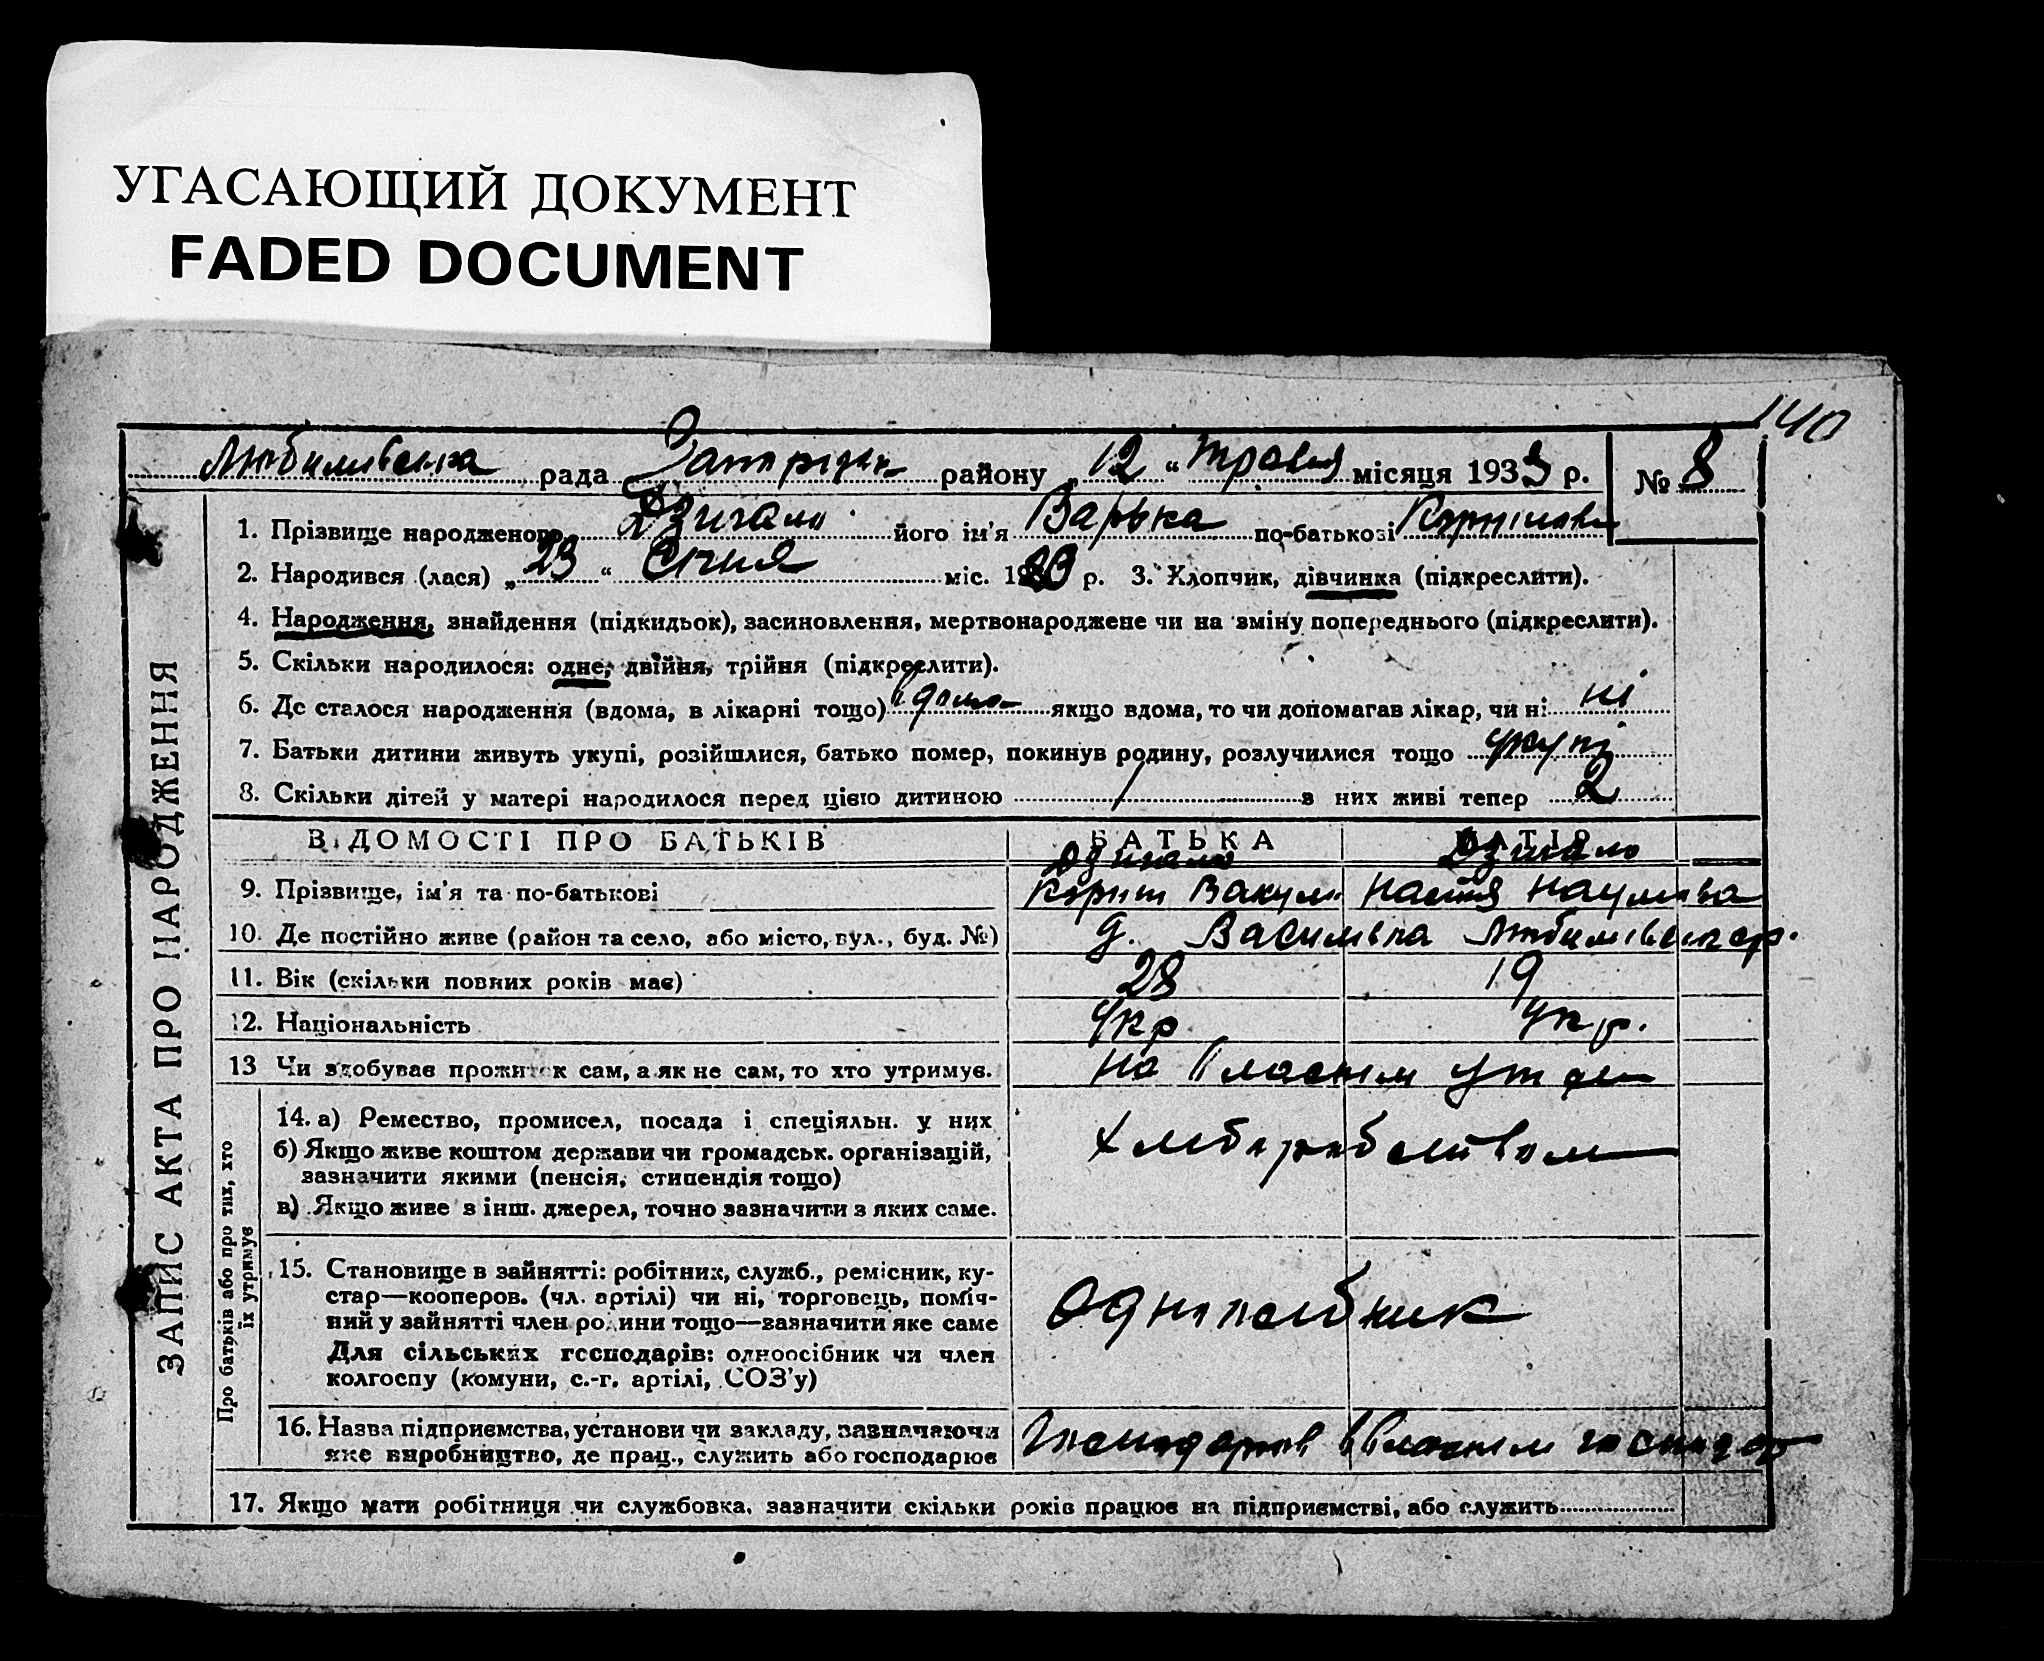 УГАСАЮЩИЙ ДОКУМЕНТ
FADED DOCUMENT
140
Любимівська рада району „12“ травня місяця 1933 р. № 8
1. Прізвище народженого Дзигало його ім'я Варька по-батькові
2. Народився (лася) „23“ січня міс. 1933 р. 3. Хлопчик, дівчинка (підкреслити).
4. Народження, знайдення (підкидьок), засиновлення, мертвонароджене чи на зміну попереднього (підкреслити).
5. Скільки народилося: одне, двійня, трійня (підкреслити).
6. Де сталося народження (вдома, в лікарні тощо) вдома якщо вдома, то чи допомагав лікар, чи ні ні
7. Батьки дитини живуть укупі, розійшлися, батько помер, покинув родину, розлучилися тощо укупі
8. Скільки дітей у матері народилося перед цією дитиною 1 з них живі тепер 2
ЗАПИС АКТА ПРО НАРОДЖЕННЯ
ВІДОМОСТІ ПРО БАТЬКІВ БАТЬКА МАТІР
Дзигало Дзигало
9. Прізвище, ім'я та по-батькові Настя Наумівна
10. Де постійно живе (район та село, або місто, вул., буд. №) д. Василівка
11. Вік (скільки повних років має) 28 19
12. Національність Укр Укр.
13 Чи здобуває прожиток сам, а як не сам, то хто утримує. на власнім утрим
Про батьків або про тих, хто
їх утримує
14. а) Ремество, промисел, посада і спеціяльн. у них
б) Якщо живе коштом держави чи громадськ. організацій,
зазначити якими (пенсія, стипендія тощо)
в) Якщо живе з інш. джерел, точно зазначити з яких саме.
хліборобством
15. Становище в зайнятті: робітник, служб., ремісник, ку-
стар—кооперов. (чл. артілі) чи ні, торговець, поміч-
ний у зайнятті член родини тощо—зазначити яке саме
Для сільських господарів: одноосібник чи член
колгоспу (комуни, с.-г. артілі, СОЗ'у)
Одноосібник
16. Назва підприємства, установи чи закладу, зазначаючи
яке виробництво, де прац., служить або господарює
власнім господар
17. Якщо мати робітниця чи службовка, зазначити скільки років працює на підприємстві, або служить